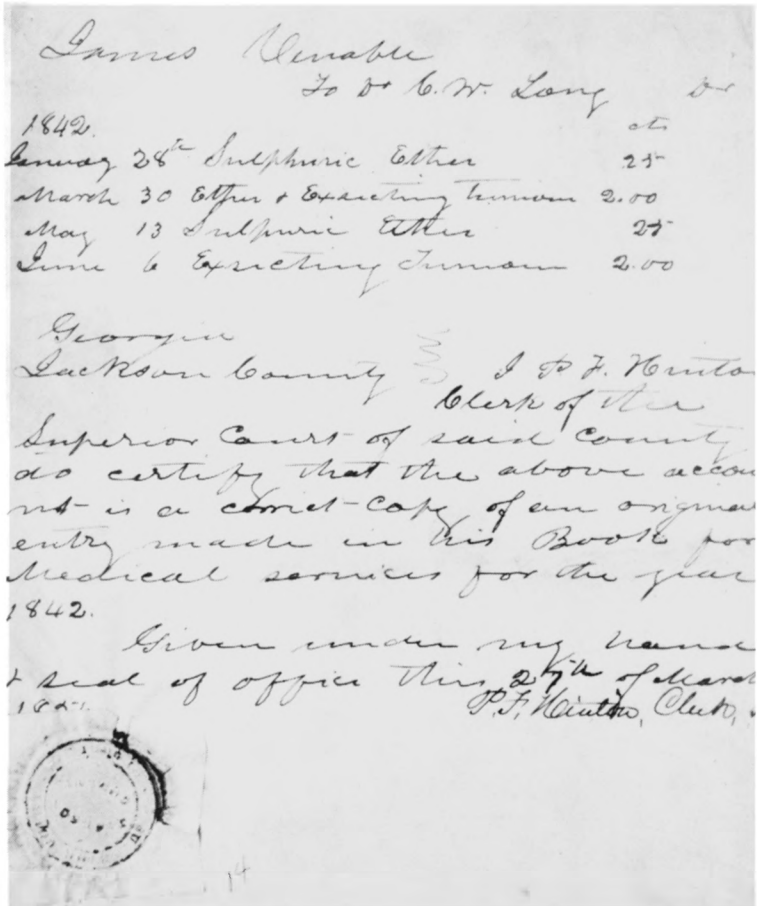 James Venable
To Dr C. W. Long Dr
1842. cts
January 28th Sulphuric Ether 25
March 30 Ether & Exsecting Tumour 2.00
May 13 Sulphuric Ether 25
June 6 Exsecting Tumour 2.00
Georgia
Jackson County I P. F. Hinto
Clerk of the
Superior Court of said County
do certify that the above accou
nt is a correct copy of an original
entry made in his Book for
Medical services for the year
1842.
Given under my hand
& seal of office this 27th of March
P. F. Hinton, Clerk,
14